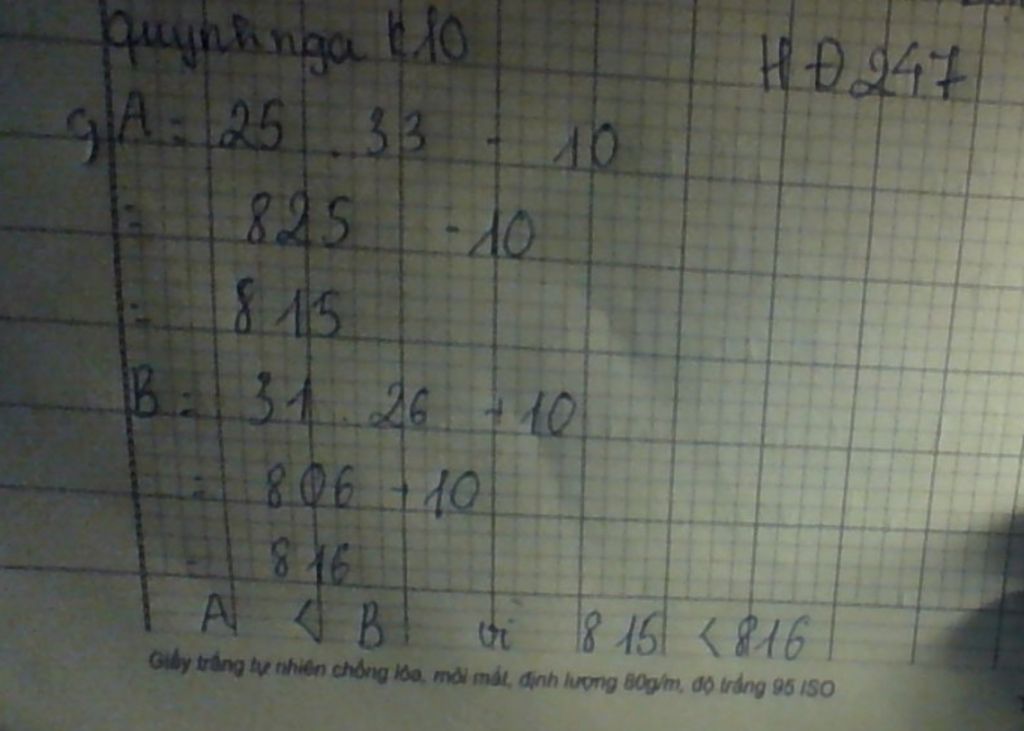 quynhnga k10
HĐ 247
9) A = 25 . 33 - 10
= 825 - 10
= 815
B = 31 . 26 + 10
= 806 + 10
= 816
A < B vì 815 < 816
Giấy trắng tự nhiên chống lóa, mỏi mắt, định lượng 80g/m, độ trắng 95 ISO